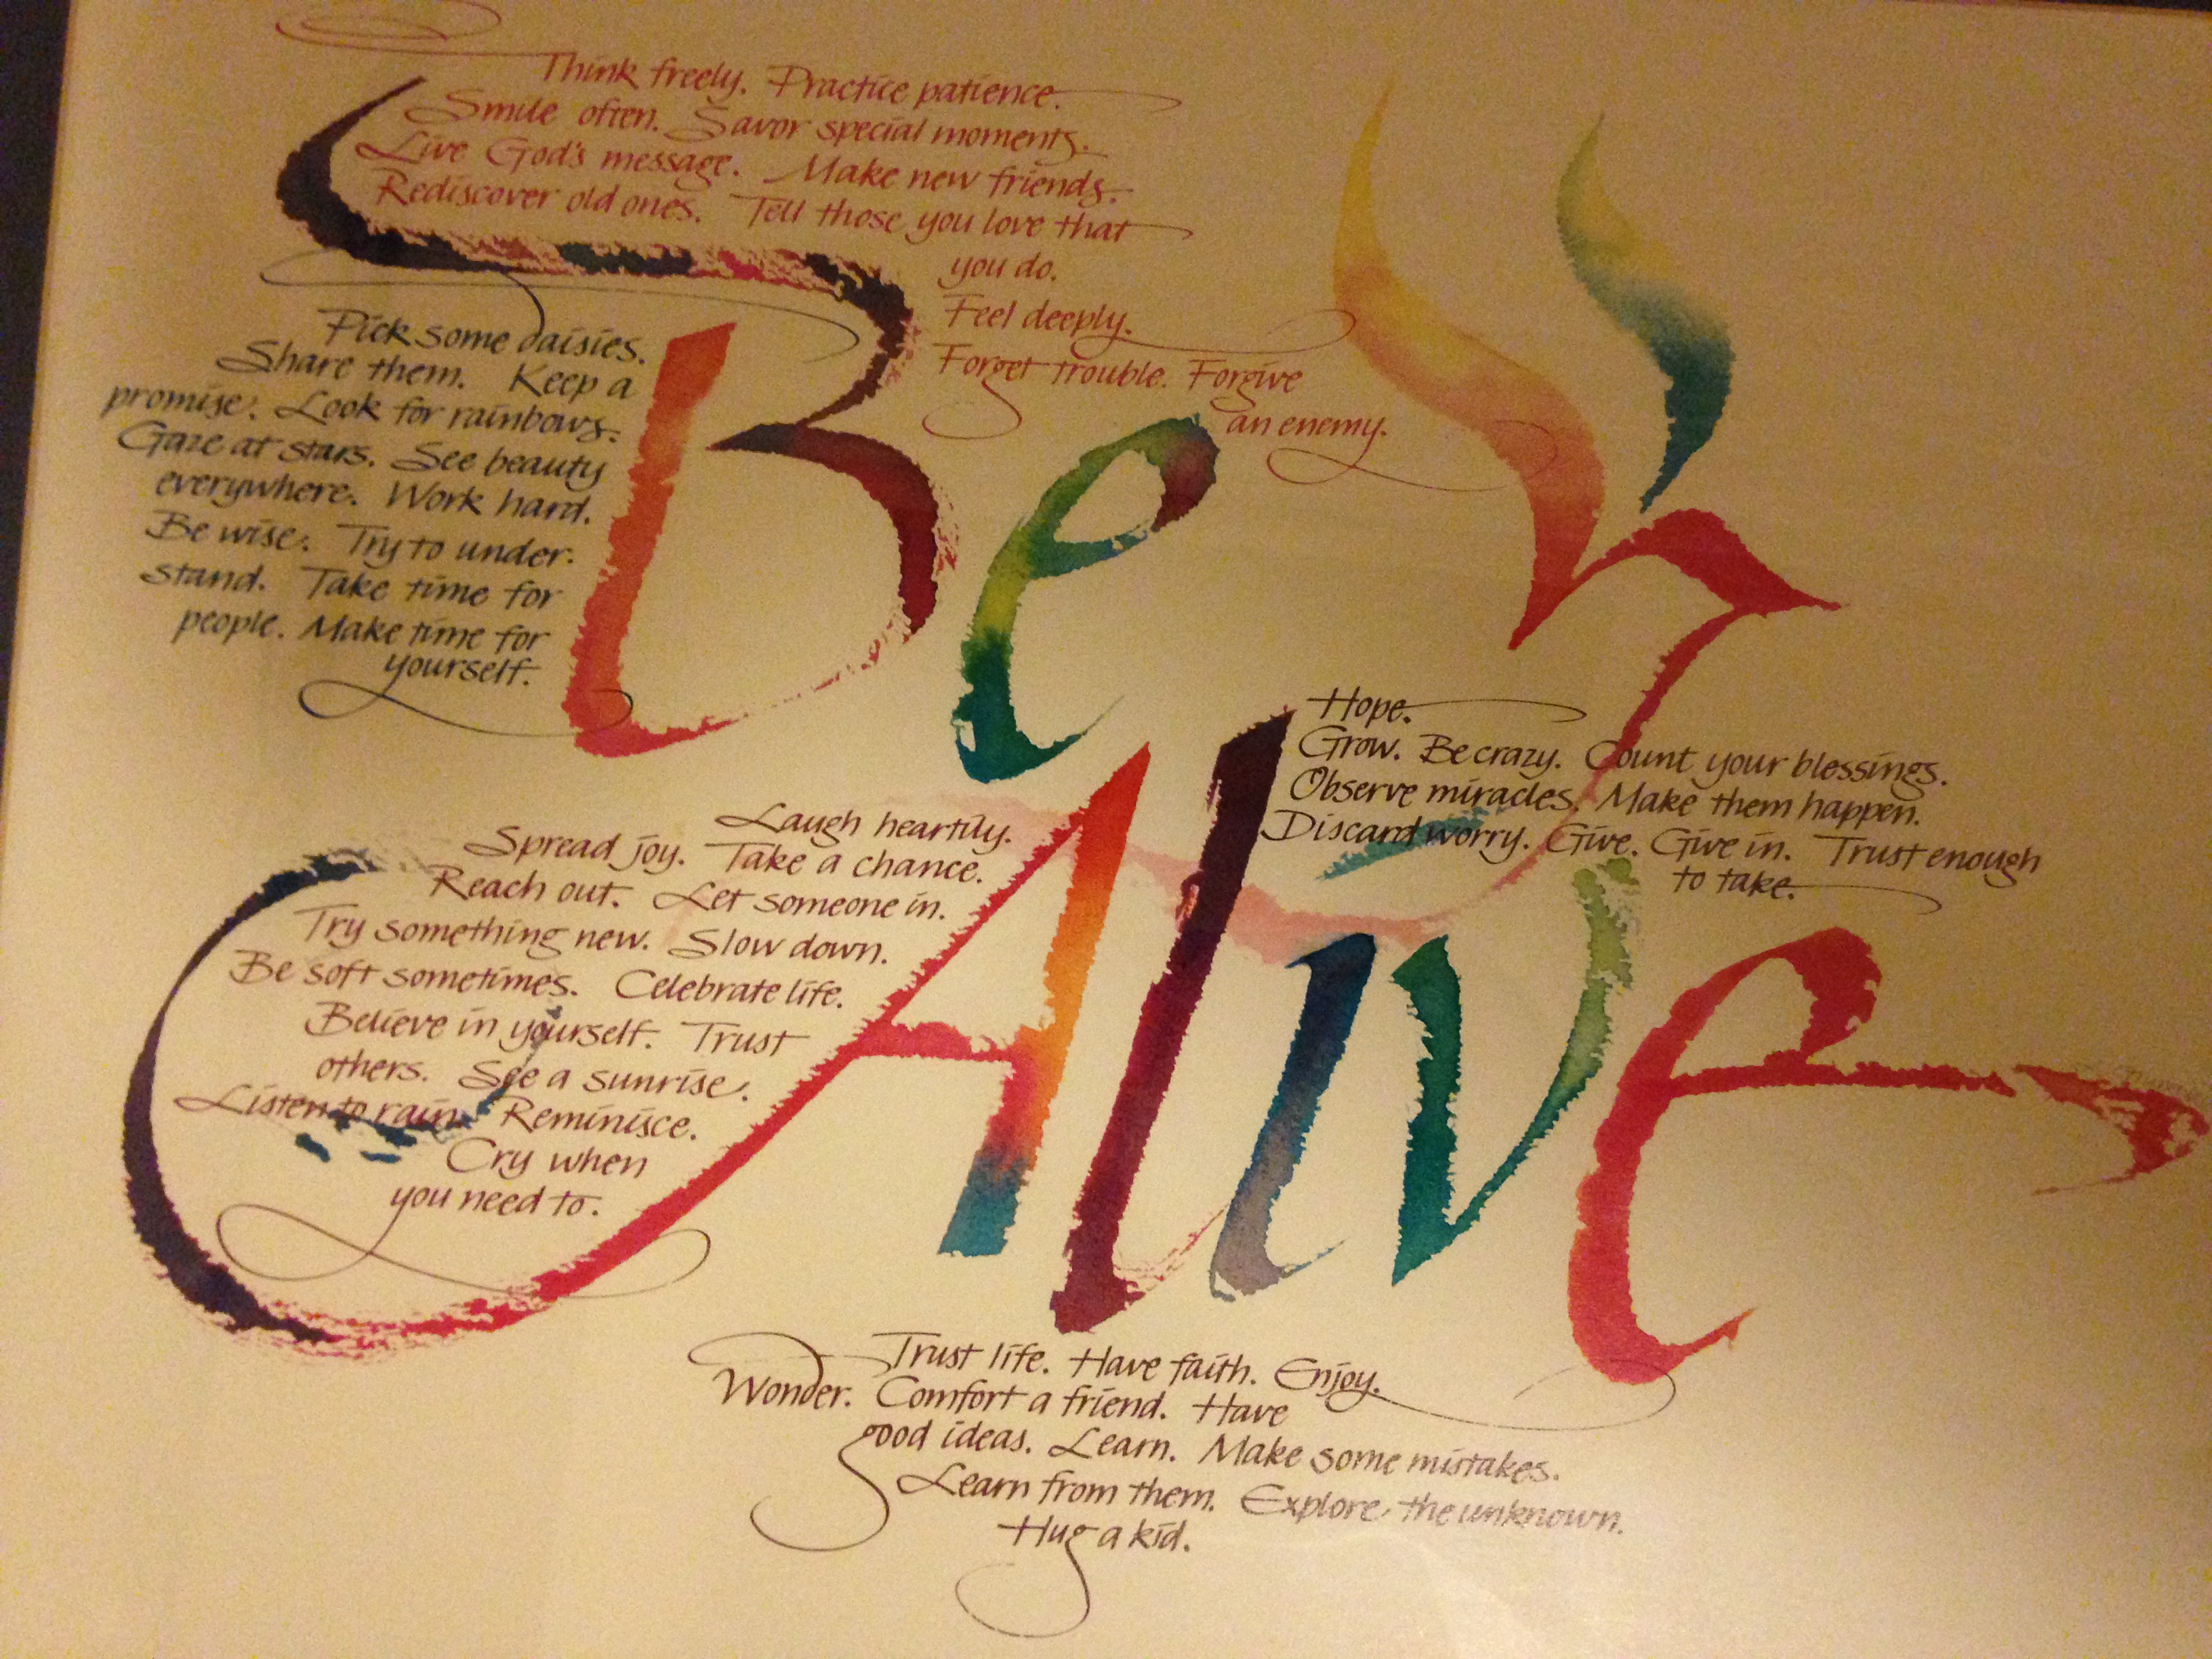 Think freely. Practice patience.
Smile often. Savor special moments.
Live God's message. Make new friends.
Rediscover old ones. Tell those you love that
you do.
Feel deeply.
Forget trouble. Forgive
an enemy.
Pick some daisies.
Share them. Keep a
promise. Look for rainbows.
Gaze at stars. See beauty
everywhere. Work hard.
Be wise. Try to under-
stand. Take time for
people. Make time for
yourself.
Be
Hope.
Grow. Be crazy. Count your blessings.
Observe miracles. Make them happen.
Discard worry. Give. Give in. Trust enough
to take.
Laugh heartily.
Spread joy. Take a chance.
Reach out. Let someone in.
Try something new. Slow down.
Be soft sometimes. Celebrate life.
Believe in yourself. Trust
others. See a sunrise.
Listen to rain. Reminisce.
Cry when
you need to.
Alive
Trust life. Have faith. Enjoy.
Wonder. Comfort a friend. Have
good ideas. Learn. Make some mistakes.
Learn from them. Explore the unknown.
Hug a kid.